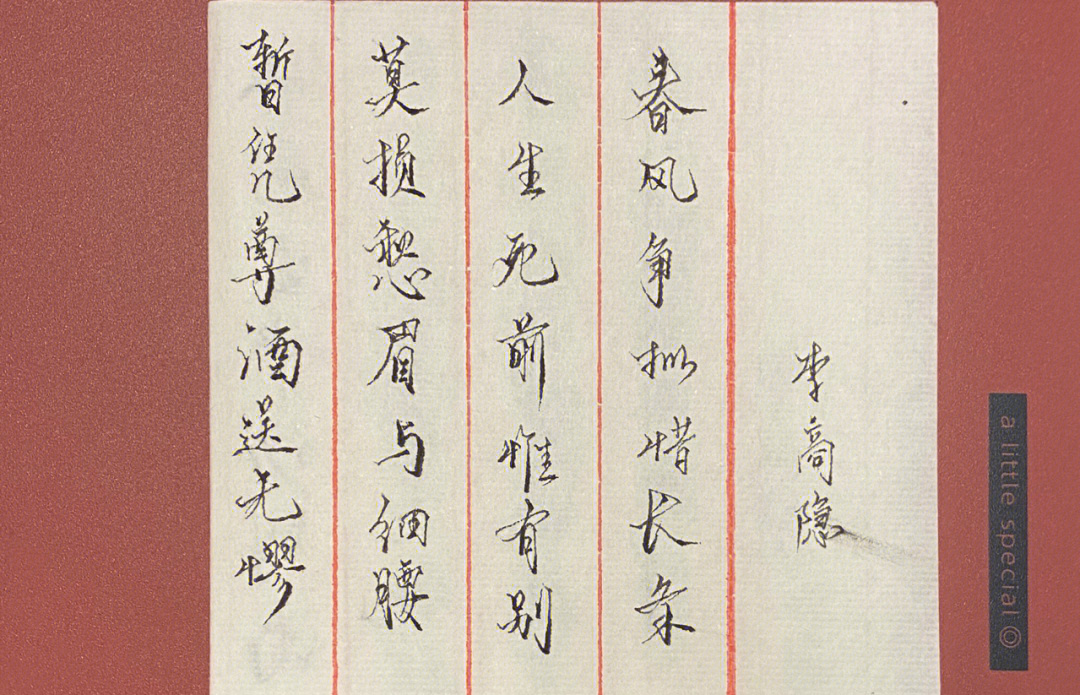 暂凭尊酒送无憀
莫损愁眉与细腰
人生死前惟有别
春风争拟惜长条
李商隐
a little special